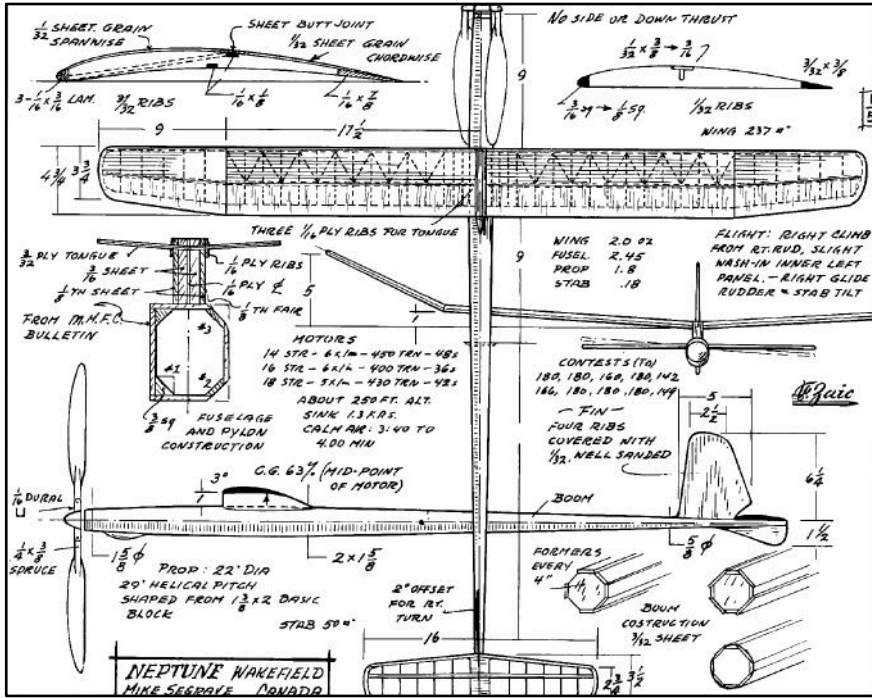 1/32 SHEET. GRAIN
SPANWISE
SHEET BUTT JOINT
1/32 SHEET GRAIN
CHORDWISE
3-1/16 x 3/16 LAM.
3/32 RIBS
1/16 x 1/8
1/16 x 7/8
NO SIDE OR DOWN THRUST
1/32 x 3/8 → 3/16
3/32 x 3/8
3/16 sq → 1/8 sq.
1/32 RIBS
WING 237 □"
9
9
17 1/2
4 3/4
3 3/4
THREE 1/16 PLY RIBS FOR TONGUE
3/32 PLY TONGUE
3/16 SHEET
1/8 TH SHEET
1/16 PLY RIBS
1/16 PLY ₵
1/8 TH FAIR
FROM M.M.F.C.
BULLETIN
#1
#2
#3
3/8 sq
FUSELAGE
AND PYLON
CONSTRUCTION
5
1
9
WING 2.0 oz
FUSEL. 2.45
PROP 1.8
STAB .18
FLIGHT: RIGHT CLIMB
FROM RT. RUD, SLIGHT
WASH-IN INNER LEFT
PANEL. - RIGHT GLIDE
RUDDER & STAB TILT
MOTORS
14 STR - 6x1m - 450 TRN - 48s
16 STR - 6x1m - 400 TRN - 36s
18 STR - 5x1m - 430 TRN - 42s
ABOUT 250 FT. ALT.
SINK 1.3 F.P.S.
CALM AIR: 3:40 TO
4.00 MIN
CONTESTS (TO)
180, 180, 160, 180, 142
166, 180, 180, 180, 149
Zaic
- FIN -
FOUR RIBS
COVERED WITH
1/32. WELL SANDED
5
2 1/2
6 1/4
1 1/2
C.G. 63% (MID-POINT
OF MOTOR)
3°
1
BOOM
1/16 DURAL
1/4 x 3/8
SPRUCE
1 5/8 ϕ
2 x 1 5/8
5/8 ϕ
PROP: 22" DIA
29" HELICAL PITCH
SHAPED FROM 1 3/8 x 2 BASIC
BLOCK
STAB 50 □"
2° OFFSET
FOR RT.
TURN
FORMERS
EVERY
4"
BOOM
COSTRUCTION
3/32 SHEET
16
2 3/4
3 1/2
NEPTUNE WAKEFIELD
MIKE SEGRAVE CANADA